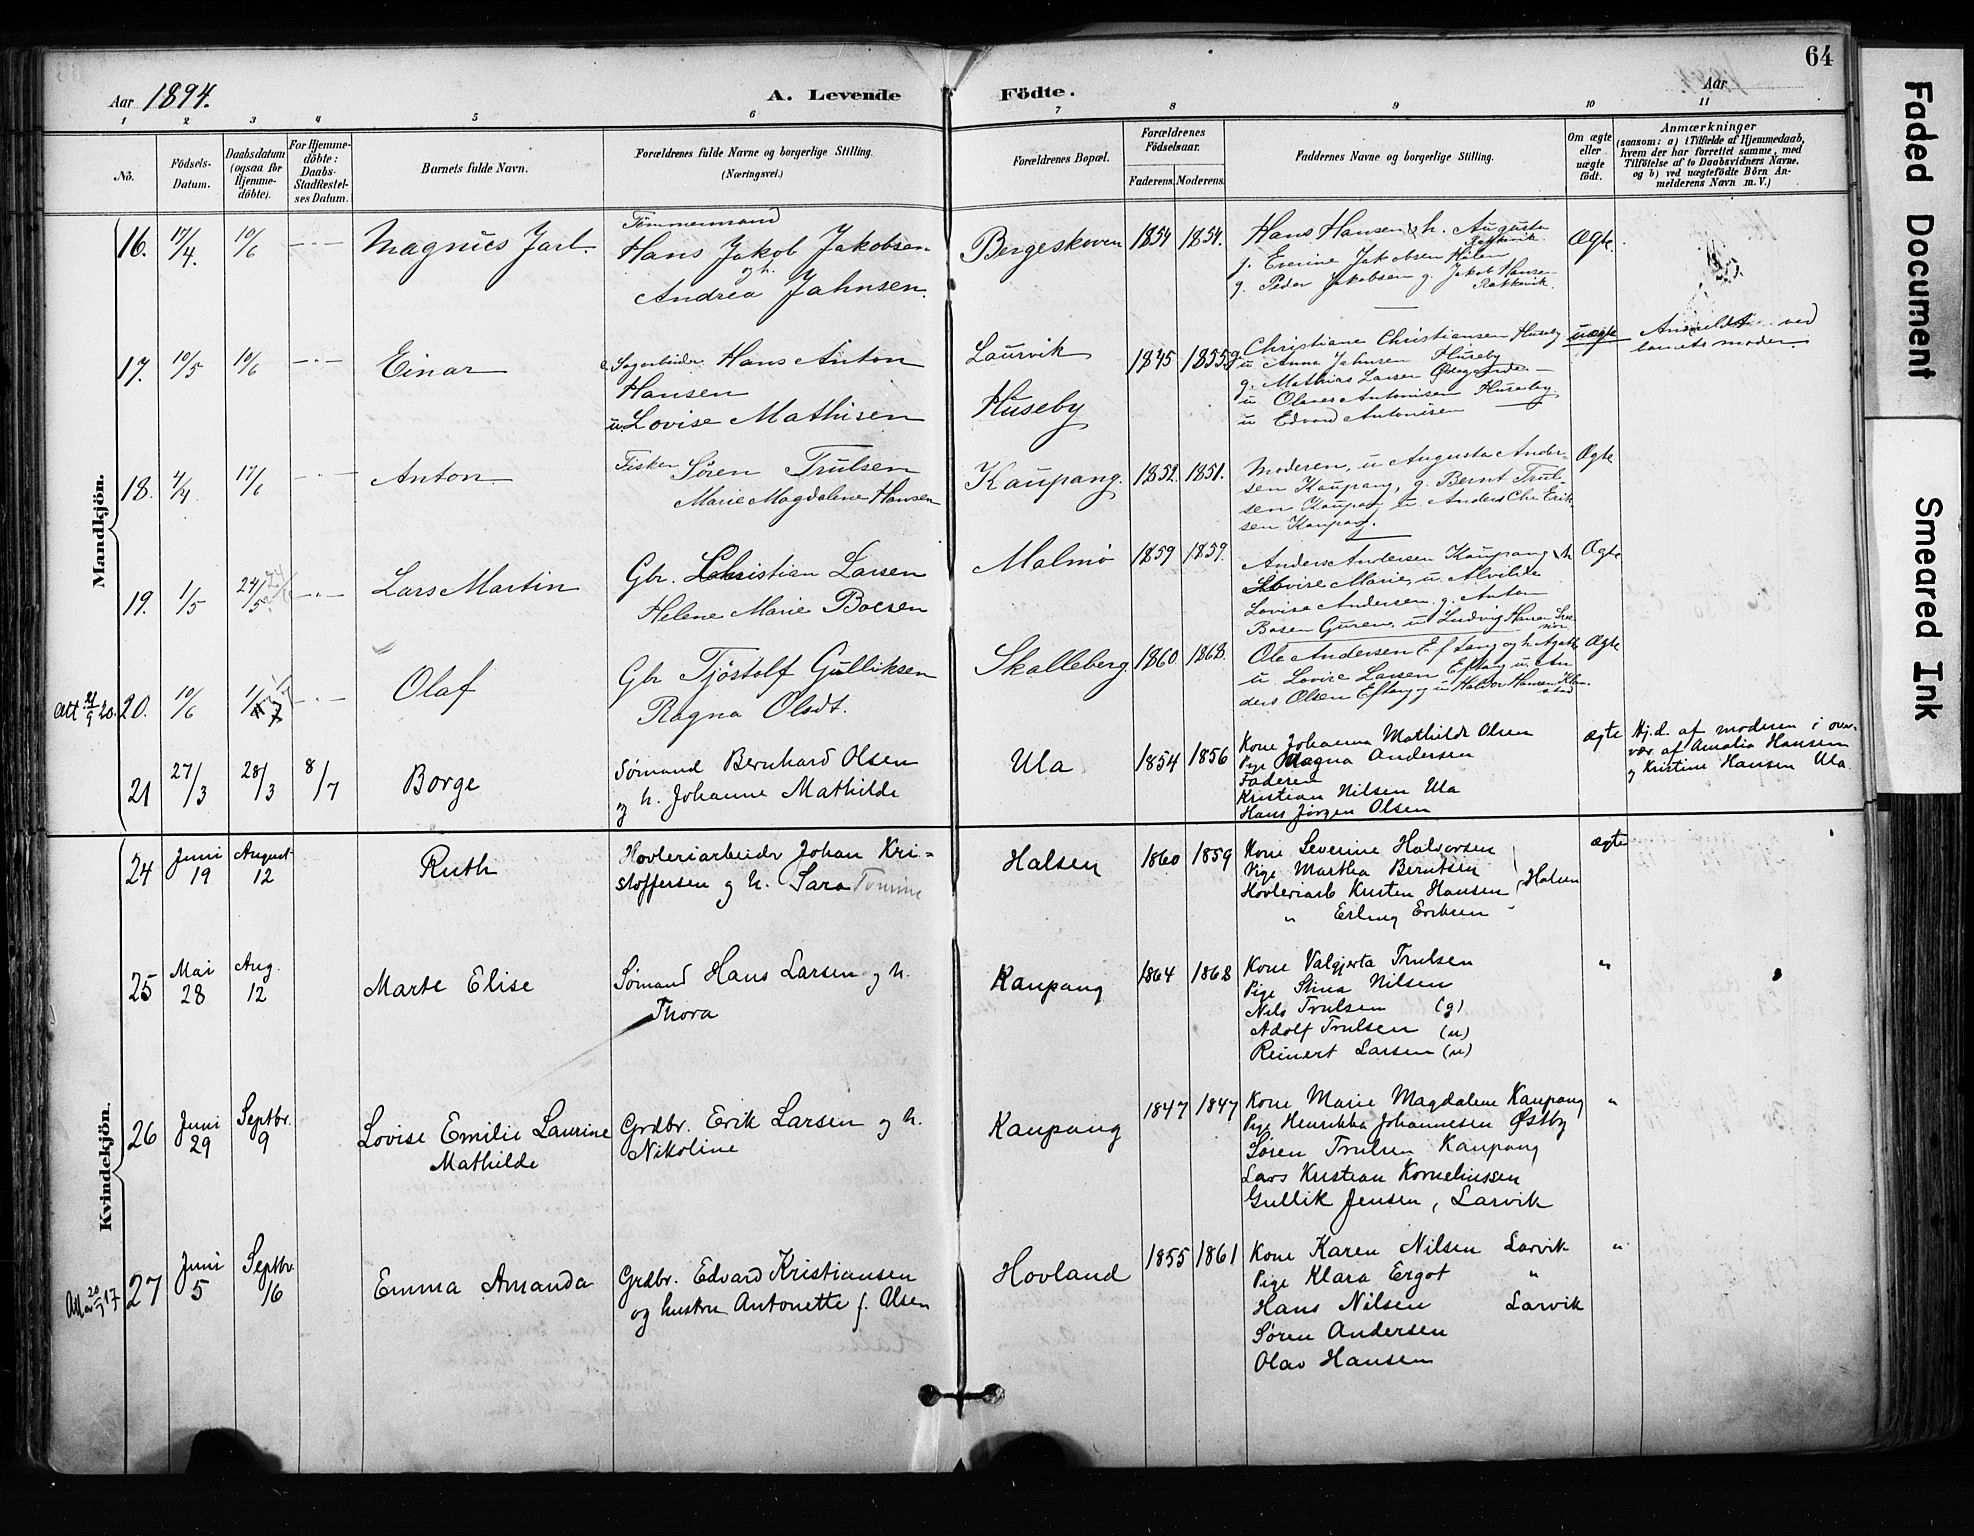 64
Aar 1894.
A. Levende Födte.
Aar
1 2 3 4 5 6 7 8 9 10 11
No.
Födsels-
Datum.
Daabsdatum
(ogsaa for
Hjemme-
döbte).
For Hjemme-
döbte:
Daabs-
Stadfæstel-
ses Datum.
Barnets fulde Navn.
Forældrenes fulde Navne og borgerlige Stilling.
(Næringsvei.)
Forældrenes Bopæl.
Forældrenes
Födselsaar.
Faderens. Moderens.
Faddernes Navne og borgerlige Stilling.
Om ægte
eller
uægte
födt.
Anmærkninger
(saasom: a) i Tilfælde af Hjemmedaab,
hvem der har forrettet samme, med
Tilföielse af to Daabsvidners Navne.
og b) ved uægtefödte Börn An-
melderens Navn m. V.)
Mandkjön.
16. 17/4. 10/6 Magnus Jarl.
Tömmermand
Hans Jakob Jakobsen
og h.
Andrea Jahnsen.
Bergeskoven 1854 1854.
Hans Hansen & h. Augusta
Rekkevik
j. Everine Jakobsen Hålen
g. Peder Jakobsen g. Jakob Hansen
Rekkevik.
Ægte.
17. 10/5 10/6 Einar
Hans Anton
Hansen
u. Lovise Mathisen
Laurvik
Huseby
1845 1855
Christiane Christiansen Huseby
u Anna Jahnsen Huseby
g. Mathias Larsen
u Olaves Antonisen Huseby
u Edvard Antonisen
uægte
Anmeldt ved
barnets moder
18. 4/4. 17/6 Anton
Fisker Sören Trulsen
Marie Magdalene Hansen
Kaupang. 1852. 1851.
Moderen, u Augusta Ander-
sen Kaupang, g. Bernt Trul-
sen Kaupang u. Anders Chr Erik-
sen Kaupang.
Ægte
19. 1/5 24/5 Lars Martin
Gbr. Christian Larsen
Helene Marie Boesen
Malmö 1859 1859.
Anders Andersen Kaupang & h
Lovise Marie, u. Alvilde
Lovise Andersen. g. Anton
Bosen Guren, u Ludvig Hansen
Ægte
Att 21/9 20. 20. 10/6 Olaf
Gbr Tjöstolf Gulliksen
Ragna Olsdt.
Skalleberg. 1860. 1868.
Ole Andersen Eftang og h. Agathe
u Lovise Larsen Eftang u. An
ders Olsen Eftang g u Halvor Hansen
Ægte
21 27/3 28/3 8/7 Borge
Sømand Bernhard Olsen
og h. Johanne Mathilde
Ula 1854 1856
Kone Johanna Mathilde Olsen
Pige Magna Andersen
Faderen
Kristian Nilsen Ula
Hans Jörgen Olsen
ægte
Hj.d. af moderen i over-
vær af Amalia Hansen
og Kristine Hansen Ula.
Kvindekjön.
24 Juni 19 August 12 Ruth
Hovleriarbeider Johan Kri-
stoffersen og h. Sara Tomine
Halsen 1860 1859
Kone Severine Halvorsen
Pige Martha Berntsen
Hovleriarb Kristen Hansen
" Erling Eriksen
Halsen
ægte
25 Mai 28 Aug. 12 Marte Elise
Sømand Hans Larsen og h.
Thora
Kaupang 1864 1868
Kone Valgjerta Trulsen
Pige Stina Nilsen
Nils Trulsen (g)
Adolf Trulsen (u)
Reinert Larsen (u)
"
26 Juni 29 Septbr. 9 Lovise Emilie Laurine
Mathilde
Grdbr. Erik Larsen og h.
Nikoline
Kaupang 1847 1847
Kone Marie Magdalene Kaupang
Pige Henrikka Johannesen Østby
Sören Trulsen Kaupang
Lars Kristian Korneliussen
Gullik Jensen, Larvik
"
27 Juni 5 Septbr 16 Emma Amanda
Grdbr. Edvard Kristiansen
og hustru Antonette f. Olsen
Hovland 1855 1861
Kone Karen Nilsen Larvik
Pige Klara Ergot "
Hans Nilsen Larvik
Sören Andersen
Olav Hansen
"
Faded Document
Smeared Ink